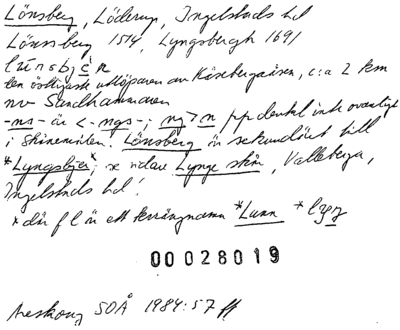 Lönsberg, Löderup, Ingelstads hd
Lönnsberg 1514, Lyngsbergh 1691
den östligaste utlöparen av Kåsebergaåsen, c:a 2 km
nv Sandhammaren
-ns- är < -ngs-; ng > n pga dental inte ovanligt
i skånemålen. Lönsberg är sekundärt till
*Lyngsbjer; se vidare Lynge skär, Valleberga,
Ingelstads hd.
*där f l är ett terrängnamn *Lunn *
00028019
Areskoug SOÅ 1984:57 ff